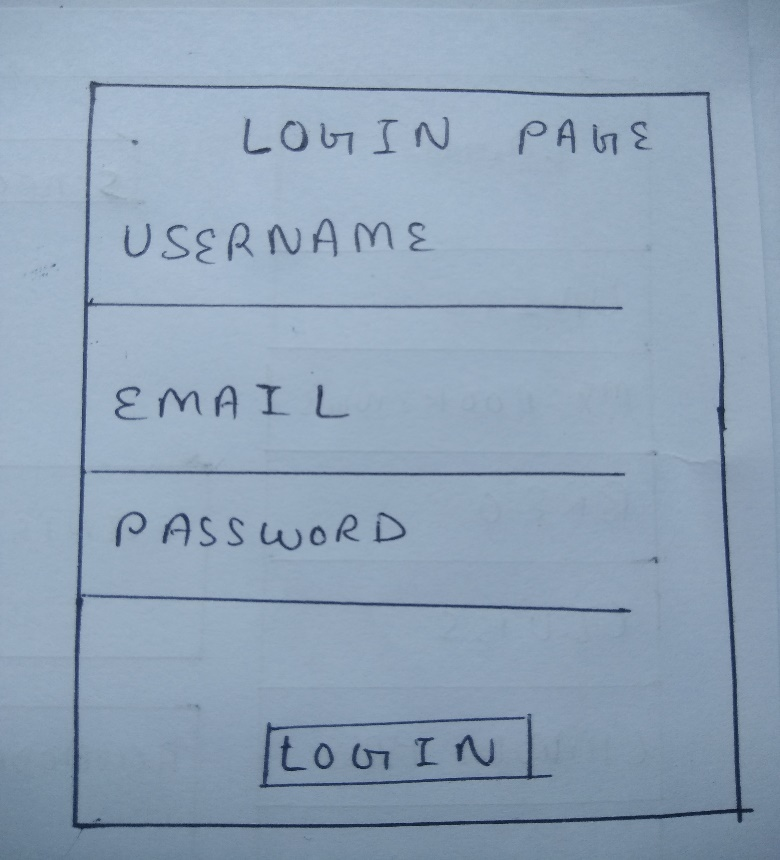 LOGIN PAGE
USERNAME
EMAIL
PASSWORD
LOGIN